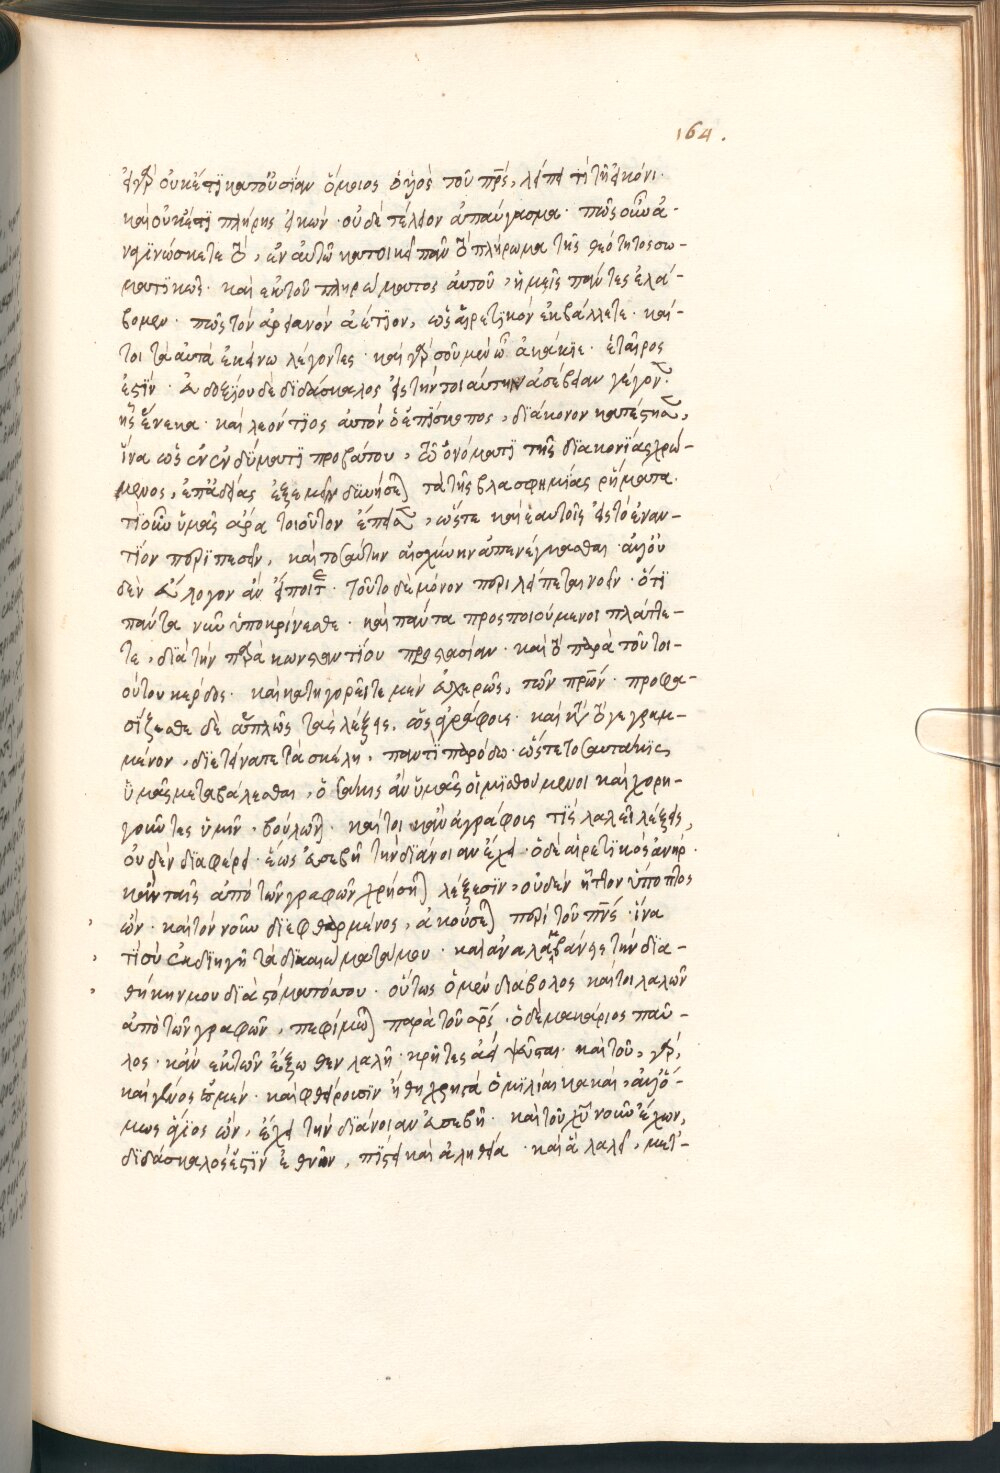 164.
εἰ γὰρ οὐκέτι κατ' οὐσίαν ὅμοιος ὁ υἱὸς τοῦ πρς, λείπει τι τῇ εἰκόνι·
καὶ οὐκέτι πλήρης εἰκών· οὐδὲ τέλειον ἀπαύγασμα· πῶς οὖν ἀ-
ναγινώσκετε τὸ, ἐν αὐτῷ κατοικεῖ πᾶν τὸ πλήρωμα τῆς θεότητος σω-
ματικῶς· καὶ ἐκ τοῦ πληρώματος αὐτοῦ, ἡμεῖς πάντες ἐλά-
βομεν· πῶς τὸν ἀρειανὸν ἀέτιον, ὡς αἱρετικὸν ἐκβάλλετε· καί-
τοι τὰ αὐτὰ ἐκείνω λέγοντες· καὶ γὰρ σοῦ μὲν ὦ ἀκάκιε· ἑταῖρος
ἐστίν· εὐδοξίου δὲ διδάσκαλος εἰς τὴν τοιαύτην ἀσέβειαν γέγον·
ἧς ἕνεκα· καὶ λεόντιος αὐτὸν ὁ ἐπίσκοπος, διάκονον κατέστησ,
ἵνα ὡς ἐν ἐνδύματι προβάτου, τῷ ὀνόματι τῆς διακονίας χρώ-
μενος, ἐπ' ἀδείας ἐξεμεῖν δυνήσετ τὰ τῆς βλασφημίας ῥήματα·
τί οὖν ὑμᾶς ἄρα τοιοῦτον ἔπεισ, ὥστε καὶ ἑαυτοῖς εἰς τὸ ἐναν-
τίον περιπεσεῖν, καὶ τοσαύτην αἰσχύνην ἀπενέγκασθαι· ἀλλ' οὐ
δὲν εὔλογον ἂν εἴποιτε· τοῦτο δὲ μόνον περιλείπεται νοεῖν· ὅτι
πάντα νῦν ὑποκρίνεσθε· καὶ πάντα προσποιούμενοι πλάττε-
τε, διὰ τὴν παρὰ κωνσταντίου προστασίαν· καὶ τὸ παρὰ τούτοι-
ούτου κέρδος· καὶ κατηγορεῖτε μὲν εὐχερῶς, τῶν πρων· προφα-
σίζεσθε δὲ ἁπλῶς τὰς λέξεις, ὡς ἀγράφοις· καὶ κατὰ τὸ γεγραμ-
μένον, διετείνατε τὰ σκέλη, παντὶ παρόδω· ὥστε τοσαυτάκις
ὑμᾶς μεταβάλεσθαι, ὁσάκις ἂν ὑμᾶς οἱ μισθούμενοι καὶ χορη-
γοῦντες ὑμῖν, βούλωντ· καίτοι κἂν ἀγράφοις τὶς λαλεῖ λέξεις,
οὐδὲν διαφέρει· ἕως εὐσεβῆ τὴν διάνοιαν ἔχει· ὁ δὲ αἱρετικὸς ἀνήρ·
κἂν ταῖς ἀπὸ τῶν γραφῶν χρήσητ λέξεσιν, οὐδὲν ἧττον ὕποπτος
ὢν· καὶ τὸν νοῦν διεφθαρμένος, ἀκούσετ παρὰ τοῦ πνς· ἵνα
τί σὺ ἐκδιηγῇ τὰ δικαιώματά μου· καὶ ἀναλαμβάνεις τὴν δια-
θήκην μου διὰ στόματός σου· οὕτως ὁ μὲν διάβολος καίτοι λαλῶν
ἀπὸ τῶν γραφῶν, πεφίμωτ παρὰ τοῦ σρς· ὁ δὲ μακάριος παῦ-
λος· κἂν ἐκ τῶν ἔξωθεν λαλῇ· κρῆτες ἀεὶ ψεῦσται· καὶ τοῦ, γὰρ,
καὶ γένος ἐσμέν· καὶ φθείρουσιν ἤθη χρηστὰ ὁμιλίαι κακαὶ, ἀλλ' ὅ-
μως ἅγιος ὢν, ἔχει τὴν διάνοιαν εὐσεβῆ· καὶ τοῦ χυ νοῦν ἔχων,
διδάσκαλος ἐστὶν ἐθνῶν, πίστει καὶ ἀληθεία· καὶ ἃ λαλεῖ, μετ'-